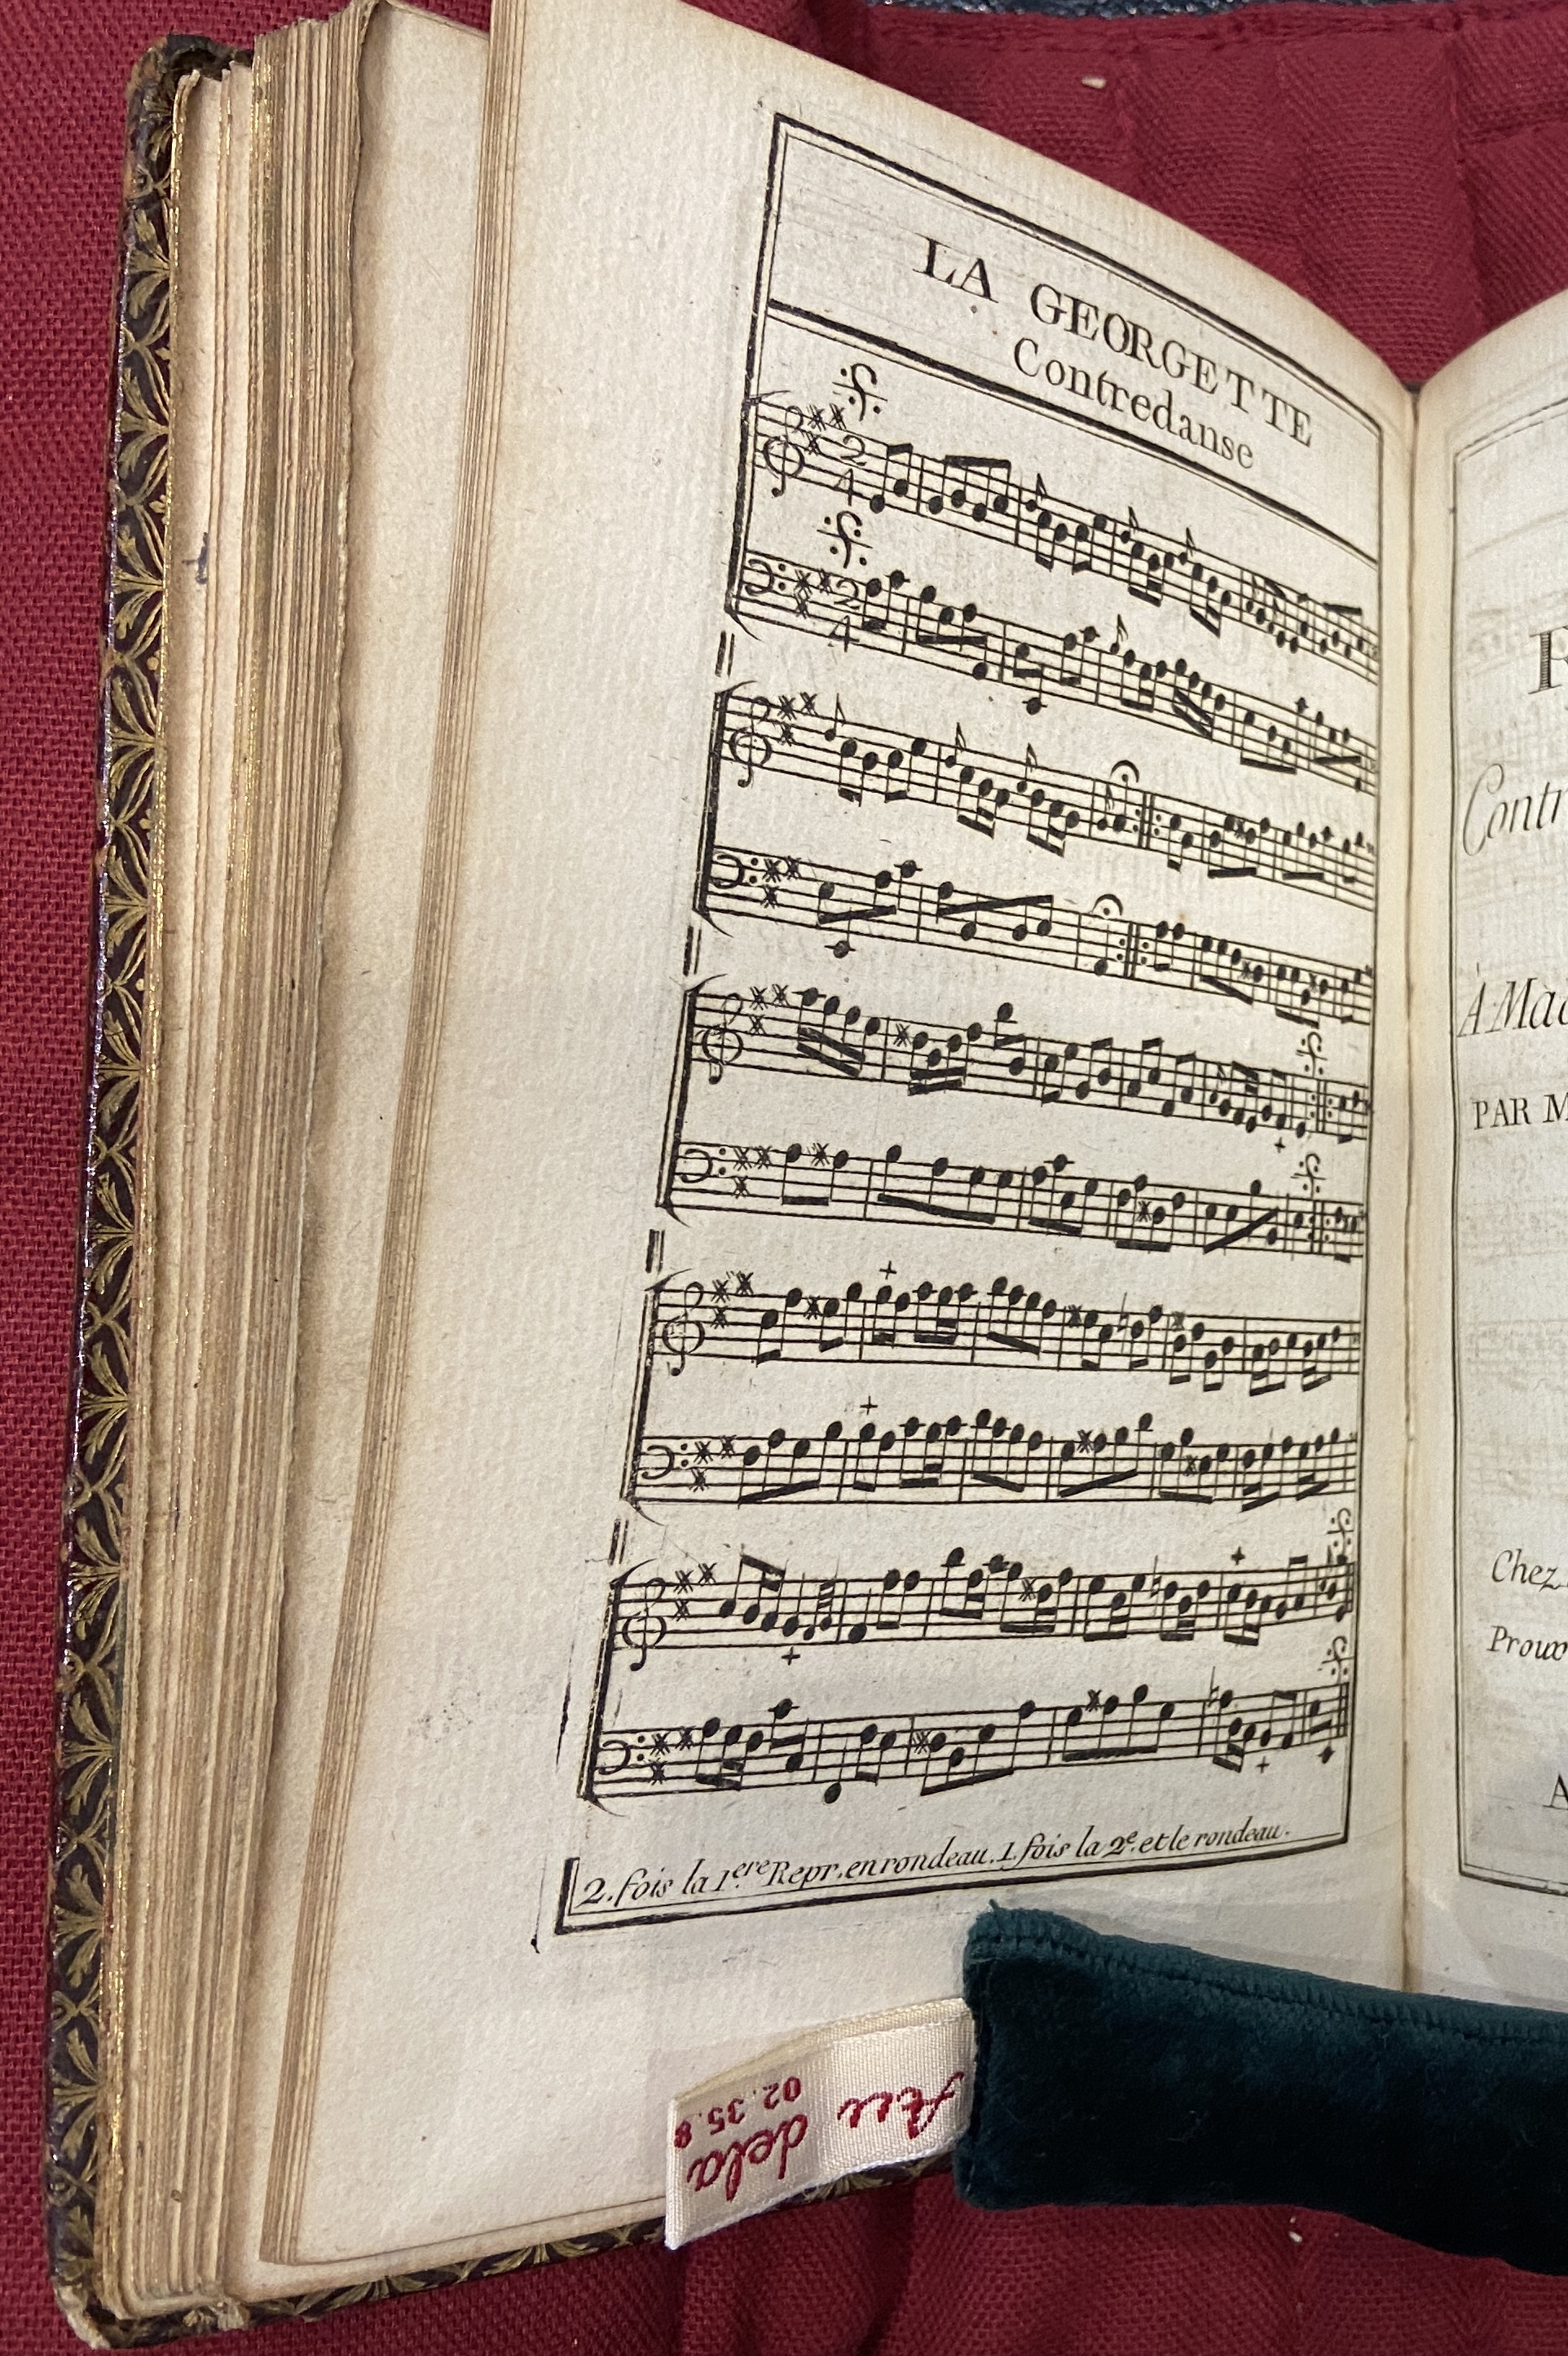 LA GEORGETTE
Contredanse
2
4
2
4
2. fois la 1ere Repr. en rondeau. 1. fois la 2e. et le rondeau.
Contr
A Mad
PAR M
Chez
Proux
A
02.35.8
dela